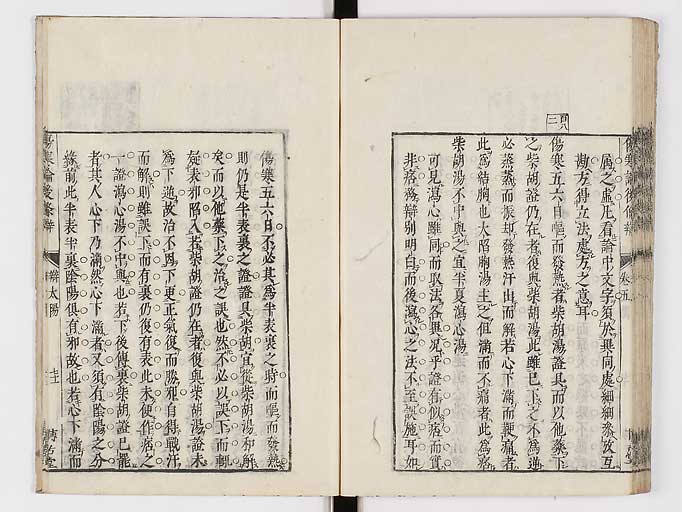 傷寒論後條辨 卷五
屬之虛凡看論中文字須於異同處細細參攷互
勘方得立法處方之意耳
傷寒五六日嘔而發熱者柴胡湯證具而以他藥下
之柴胡湯證仍在者復與柴胡湯此雖已下之不為逆
必蒸蒸而振却發熱汗出而解若心下滿而鞕痛者
此為結胸也大陷胸湯主之但滿而不痛者此為痞
柴胡湯不中與之宜半夏瀉心湯
可見瀉心雖同而取法各異況乎證有似痞而實
非痞務辯別明白而後瀉心之法不至誤施耳如
傷寒五六日不必其為半表裏之時而嘔而發熱
則仍是半表裏之證證具柴胡宜從柴胡湯和解
矣而以他藥下之治之誤也然不必以誤下而輒
疑表邪陷入若柴胡證仍在者復與柴胡湯證未
為下逆故治不因下更正氣復而勝邪自得戰汗
而解則雖誤下而有裏仍復有表此未便作痞之
一證瀉心湯不中與也若下後傳裏柴胡證已罷
者其人心下乃滿然心下滿者又須有陰陽之分
緣前此半表半裏陰陽俱有邪故也若心下滿而
傷寒論後條辨 辯太陽